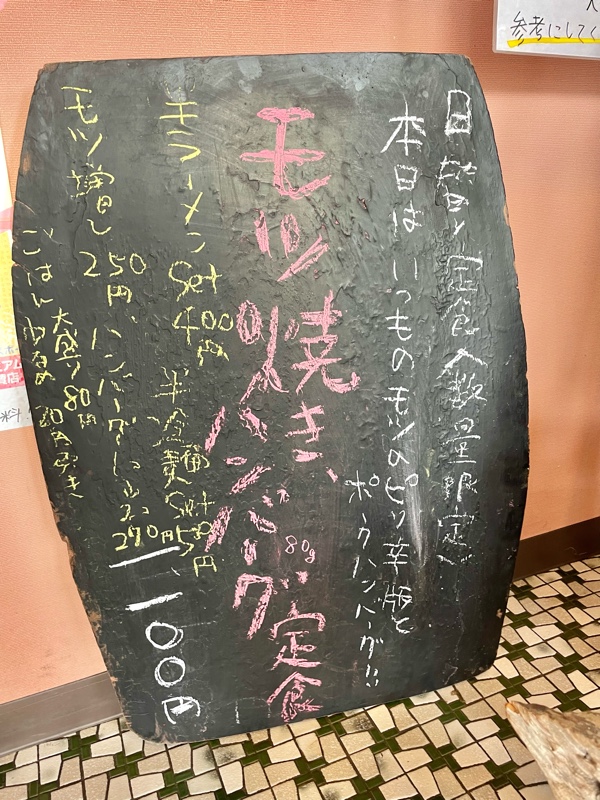 日替り定食〈数量限定〉
本日はいつものモツのピリ辛版と
ポークハンバーグ!!
モツ焼き、ハンバーグ定食
80g
ラーメンSet 400円
半冷麺Set 550円
モツ増し 250円、ハンバーグ
270円
ごはん 大盛り 80円
少なめ 20円引き
1100円
参考にしてく